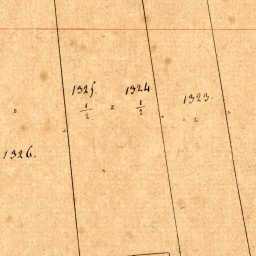 1325.
1/2
1324
1/2
1323.
1326.